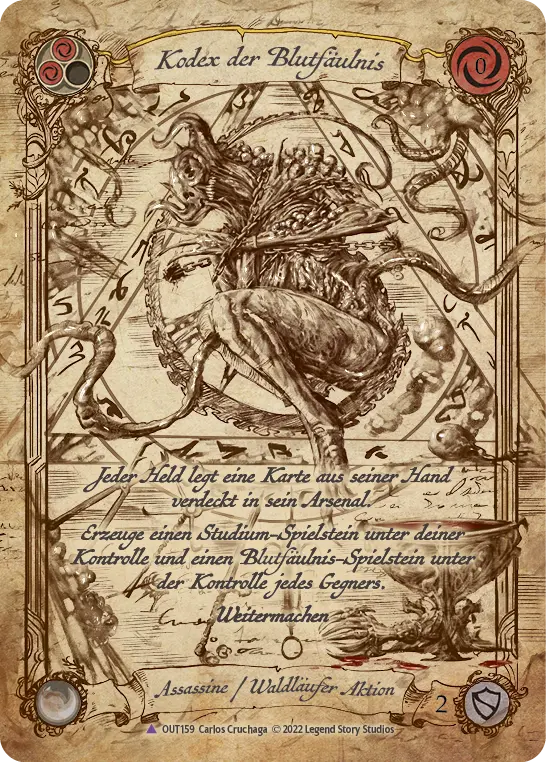 Kodex der Blutfäulnis
0
Jeder Held legt eine Karte aus seiner Hand
verdeckt in sein Arsenal.
Erzeuge einen Studium-Spielstein unter deiner
Kontrolle und einen Blutfäulnis-Spielstein unter
der Kontrolle jedes Gegners.
Weitermachen
Assassine / Waldläufer Aktion
2
OUT159 Carlos Cruchaga © 2022 Legend Story Studios